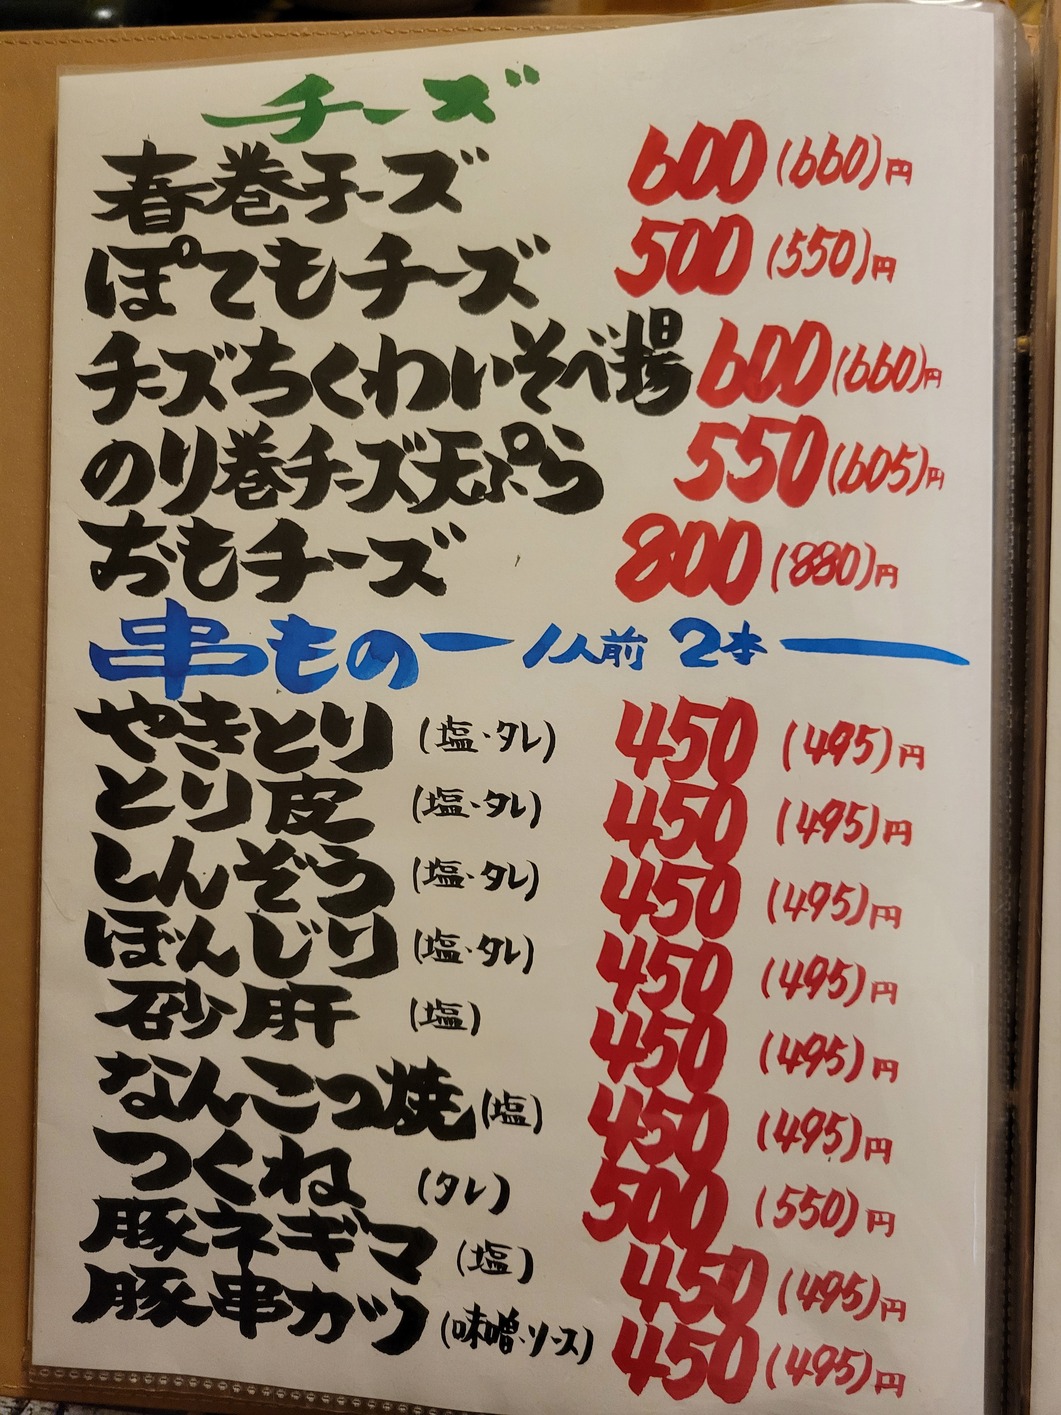 チーズ
春巻チーズ 600(660)円
ぽてもチーズ 500(550)円
チーズちくわいそべ揚 600(660)円
のり巻チーズ天ぷら 550(605)円
おもチーズ 800(880)円
串もの一1人前 2本一
やきとり (塩・タレ) 450(495)円
とり皮 (塩・タレ) 450(495)円
しんぞう (塩・タレ) 450(495)円
ぼんじり (塩・タレ) 450(495)円
砂肝 (塩) 450(495)円
なんこつ焼 (塩) 450(495)円
つくね (タレ) 500(550)円
豚ネギマ (塩) 450(495)円
豚串カツ (味噌・ソース) 450(495)円